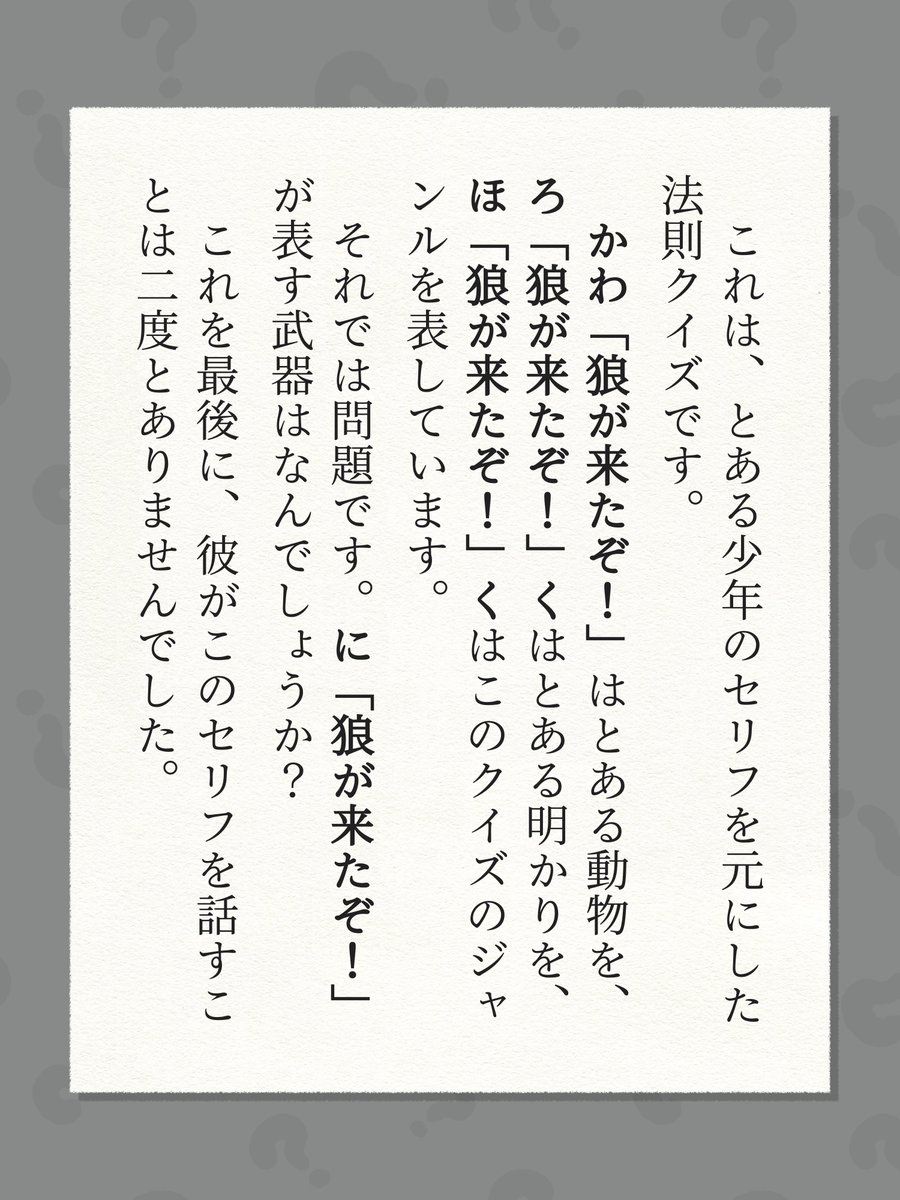 これは、とある少年のセリフを元にした
法則クイズです。
かわ「狼が来たぞ！」はとある動物を、
ろ「狼が来たぞ！」くはとある明かりを、
ほ「狼が来たぞ！」くはこのクイズのジャ
ンルを表しています。
それでは問題です。に「狼が来たぞ！」
が表す武器はなんでしょうか？
これを最後に、彼がこのセリフを話すこ
とは二度とありませんでした。